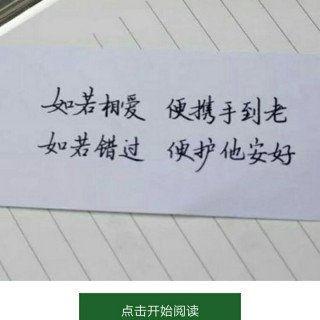 如若相爱 便携手到老
如若错过 便护他安好
点击开始阅读